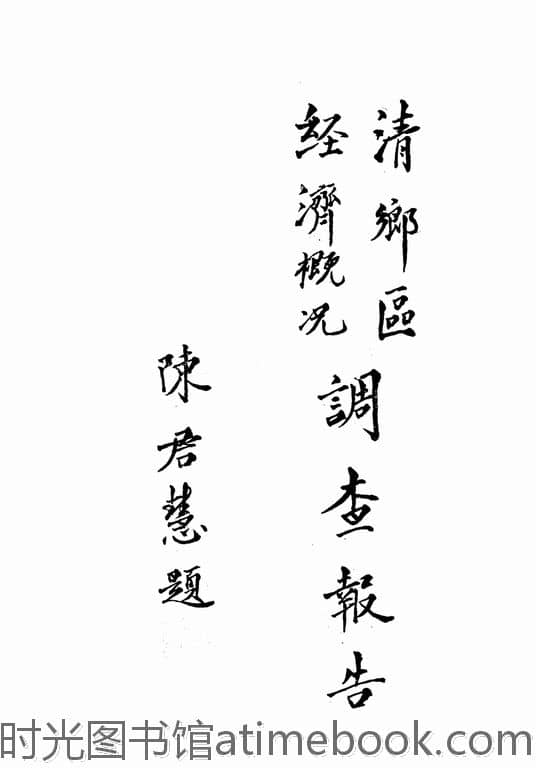 清鄉區
經濟概況
調查報告
陳君慧題
时光图书馆atimebook.com